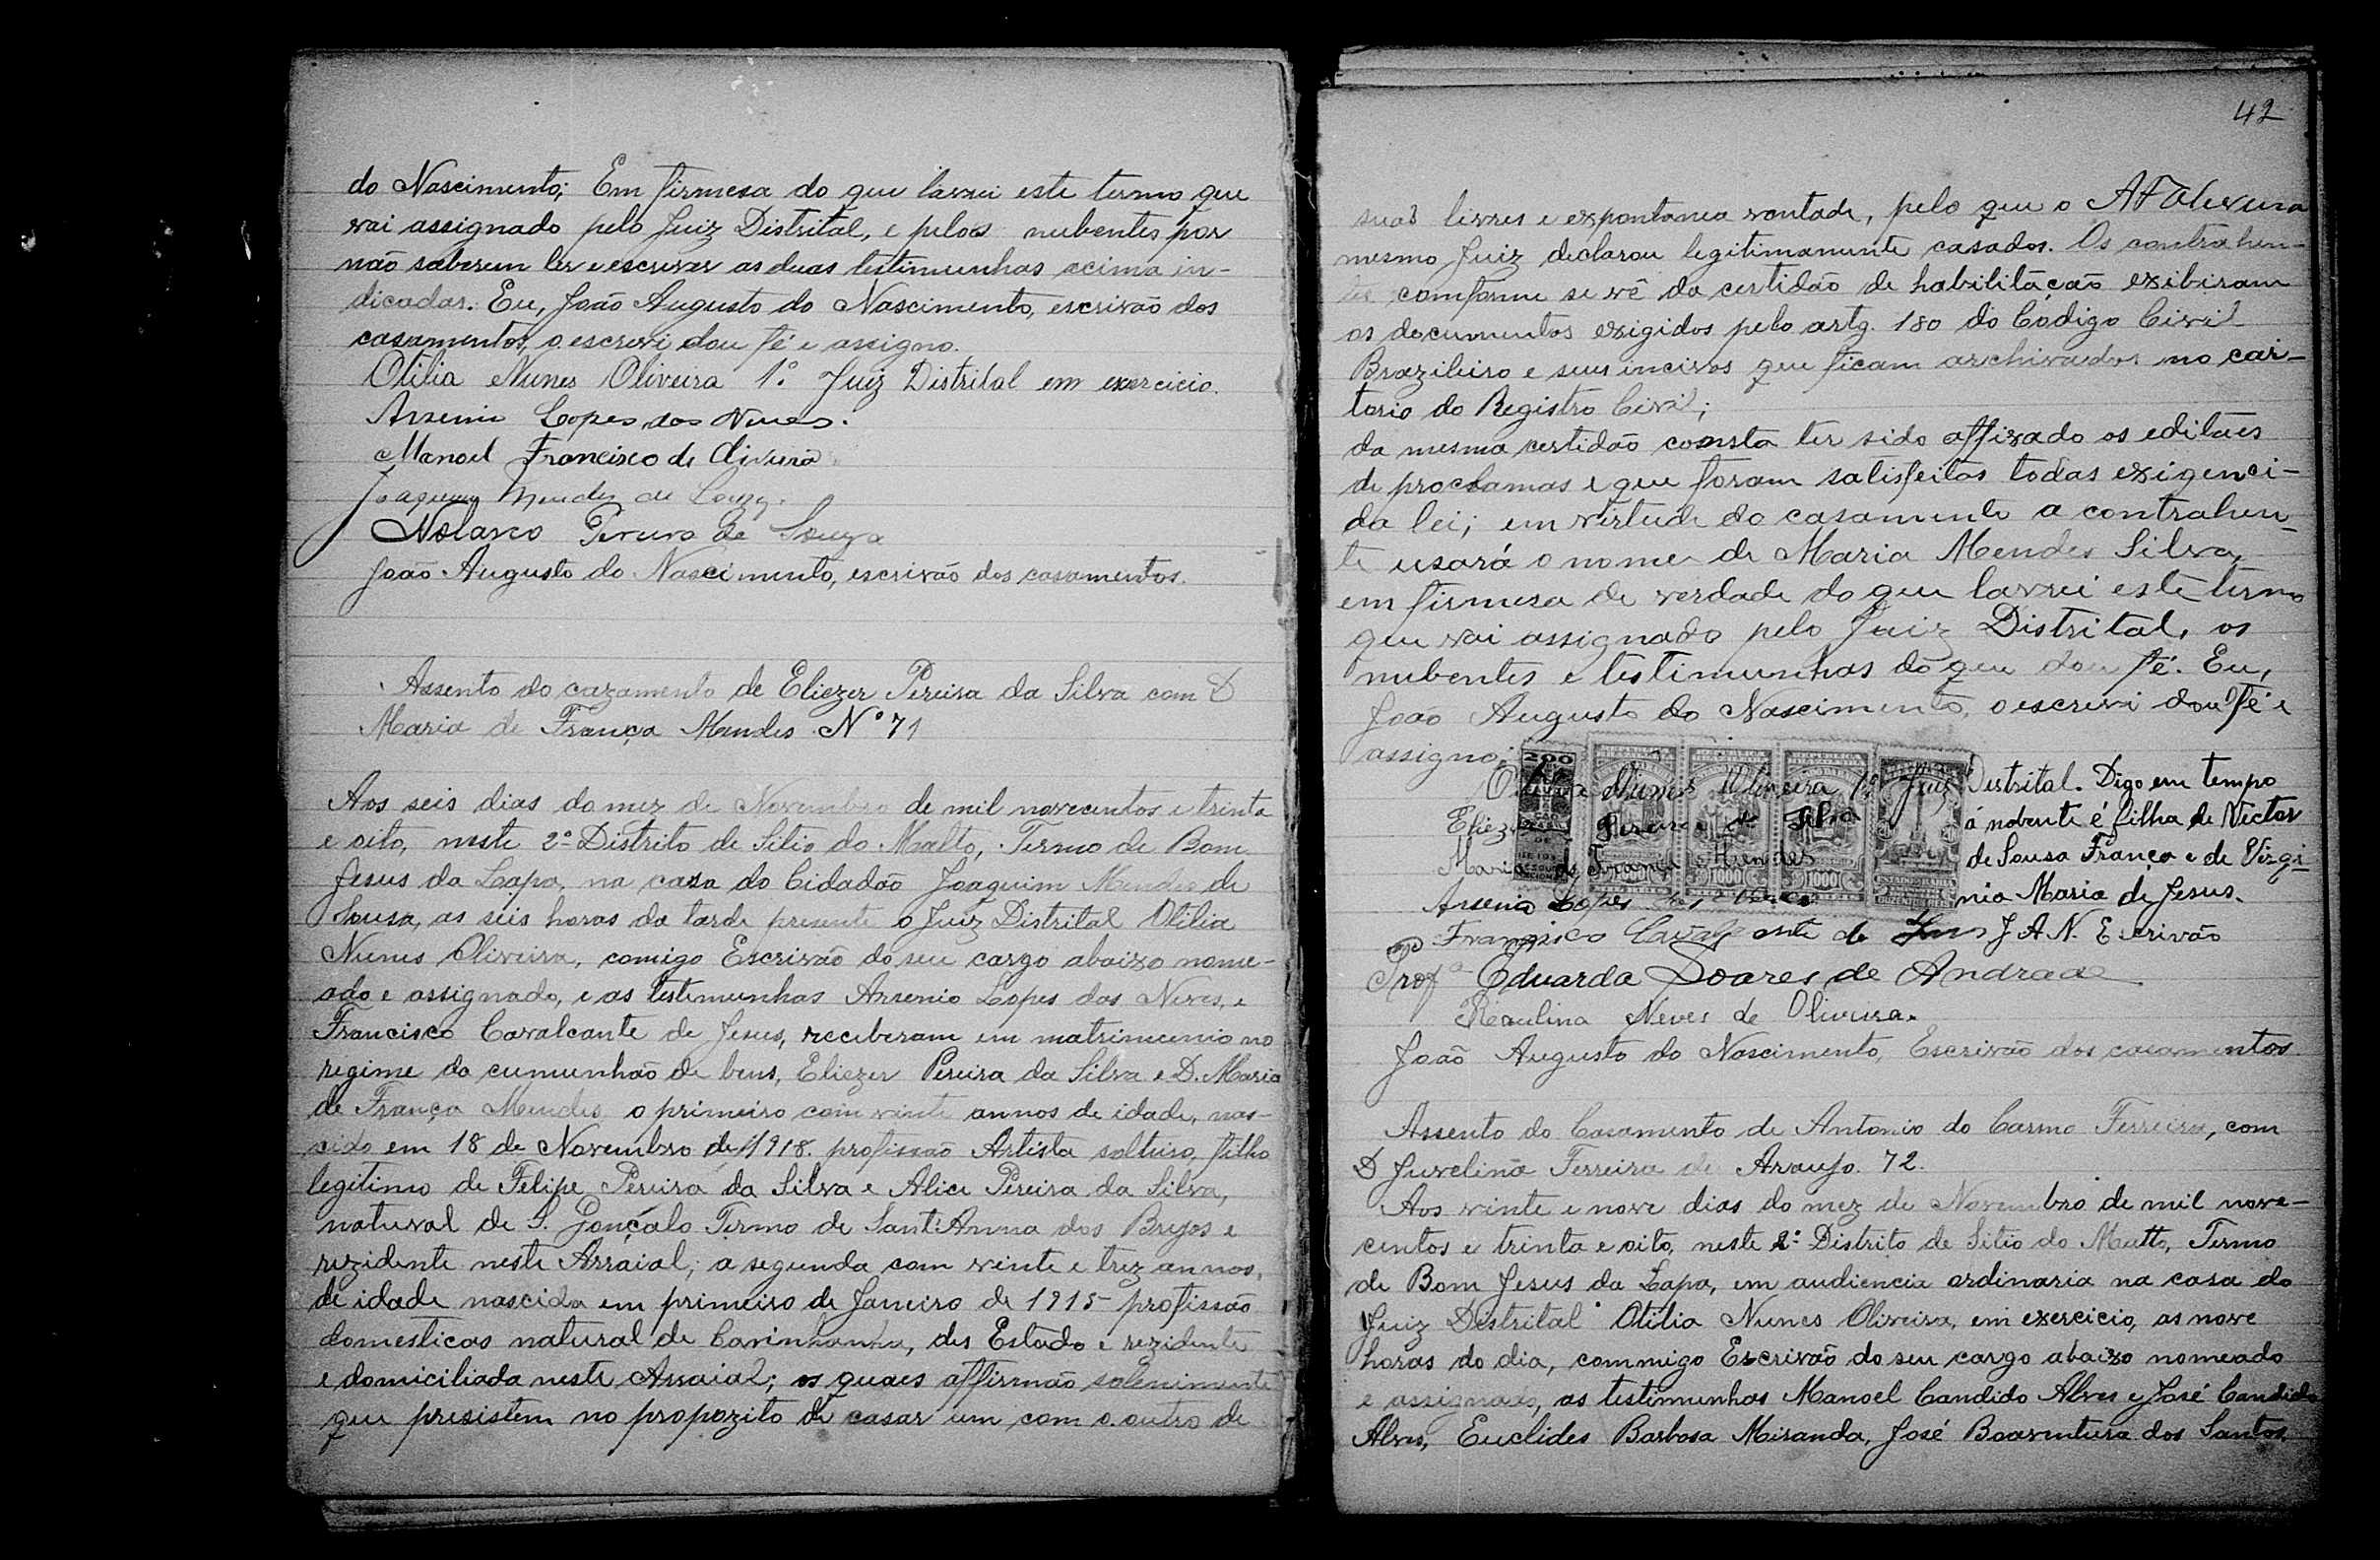 do Nascimento; Em firmesa do que lavrei este termo que
vai assignado pelo Juiz Distrital, e pelos nubentes por
não saberem ler e escrever as duas testimunhas acima in-
dicadas. Eu, João Augusto do Nascimento, escrivão dos
casamentos, o escrevi dou fé e assigno.
Otilia Nunes Oliveira 1º Juiz Distrital em exercicio.
Arsenio Lopes das Neves.
Manoel Francisco de Oliveira
Joaquim Mendes de Souza.
Nolasco Pereira de Souza
João Augusto do Nascimento, escrivão dos casamentos.
Assento do cazamento de Eliezer Pereira da Silva com D
Maria de França Mendes Nº 71
Aos seis dias do mez de Novembro de mil novecentos e trinta
e oito, neste 2º Distrito de Sitio do Matto, Termo de Bom
Jesus da Lapa, na casa do Cidadão Joaquim Mendes de
Sousa, as seis horas da tarde presente o Juiz Distrital Otilia
Nunes Oliveira, comigo Escrivão do seu cargo abaixo nome-
ado e assignado, e as testemunhas Arsenio Lopes das Neves, e
Francisco Cavalcante de Jesus, receberam em matrimenio no
regime da cumunhão de bens, Eliezer Pereira da Silva e D. Maria
de França Mendes o primeiro com vinte annos de idade, nas-
cido em 18 de Novembro de 1918. profissão Artista solteiro, filho
legitimo de Felipe Pereira da Silva e Alice Pereira da Silva,
natural de S. Gonçalo Termo de Sant'Anna dos Brejos e
rezidente neste Arraial; a segunda com vinte e trez annos,
de idade nascida em primeiro de Janeiro de 1915 profissão
domesticas natural de Carinhanha, des Estado e rezidente
e domiciliada neste Arraial; os quaes affirmão solenimente
que presistem no propozito de casar um com o outro de
42
suas livres e expontanea vontade, pelo que o
mesmo Juiz declarou legitimamente casados. Os contrahen-
tes conforme se vê da certidão de habilitação exibiram
os documentos exigidos pelo artg. 180 do Codigo Civil
Brazileiro e seus incisos que ficam archivados no car-
torio do Registro Civil;
da mesma certidão consta ter sido affixado os editaes
de proclamas e que foram satisfeitas todas exigenci-
da lei; em virtude do casamento a contrahen-
te usará o nome de Maria Mendes Silva,
em firmesa de verdade do que lavrei este termo
que vai assignado pelo Juiz Distrital, os
nubentes e testimunhas do que dou fé. Eu,
João Augusto do Nascimento, o escrevi dou fé e
assigno.
200
1000 1000 1000
Otilia Nunes Oliveira 1º Juiz Distrital. Digo em tempo
Eliezer Pereira da Silva á nobente é filha de Nector
Maria de França Mendes de Sousa França e de Virgi-
Arsenio Lopes das Neves nia Maria de Jesus.
Francisco Cavalcante de Jesus J A N. Escrivão
Profª Eduarda Soares de Andrade
Neves de Oliveira.
João Augusto do Nascimento, Escrivão dos casamentos
Assento do Casamento de Antonio do Carmo Ferreira, com
D Juvelina Ferreira de Araujo. 72.
Aos vinte e nove dias do mez de Novembro de mil nove-
centos e trinta e oito, neste 2º Distrito de Sitio do Matto, Termo
de Bom Jesus da Lapa, em audiencia ordinaria na casa do
Juiz Distrital Otilia Nunes Oliveira, em exercicio, as nove
horas do dia, commigo Escrivão do seu cargo abaixo nomeado
e assignado, as testimunhas Manoel Candido Alves e José Candido
Alves, Euclides Barbosa Miranda, José Boaventura dos Santos,